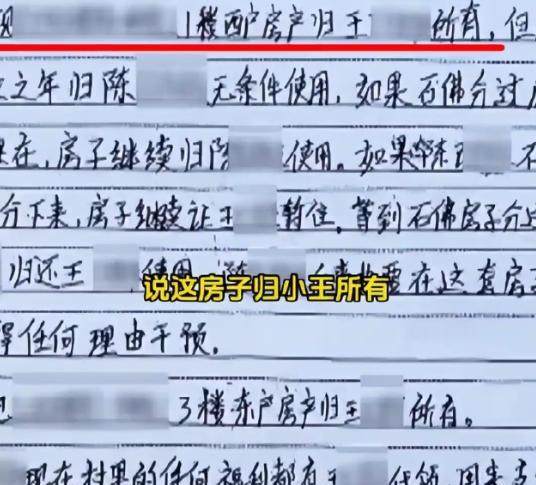 现 1楼西户房产归王 所有，但
之年归陈 无条件使用，如果石佛分过
在，房子继续归陈 使用。如果 陈 石
分下来，房子继续让王 暂住。等到石佛房子分
归还王 使用 在这套房
说这房子归小王所有
得任何理由干预。
3楼东户房产归王 所有。
现在村里的任何福利都有王 代领